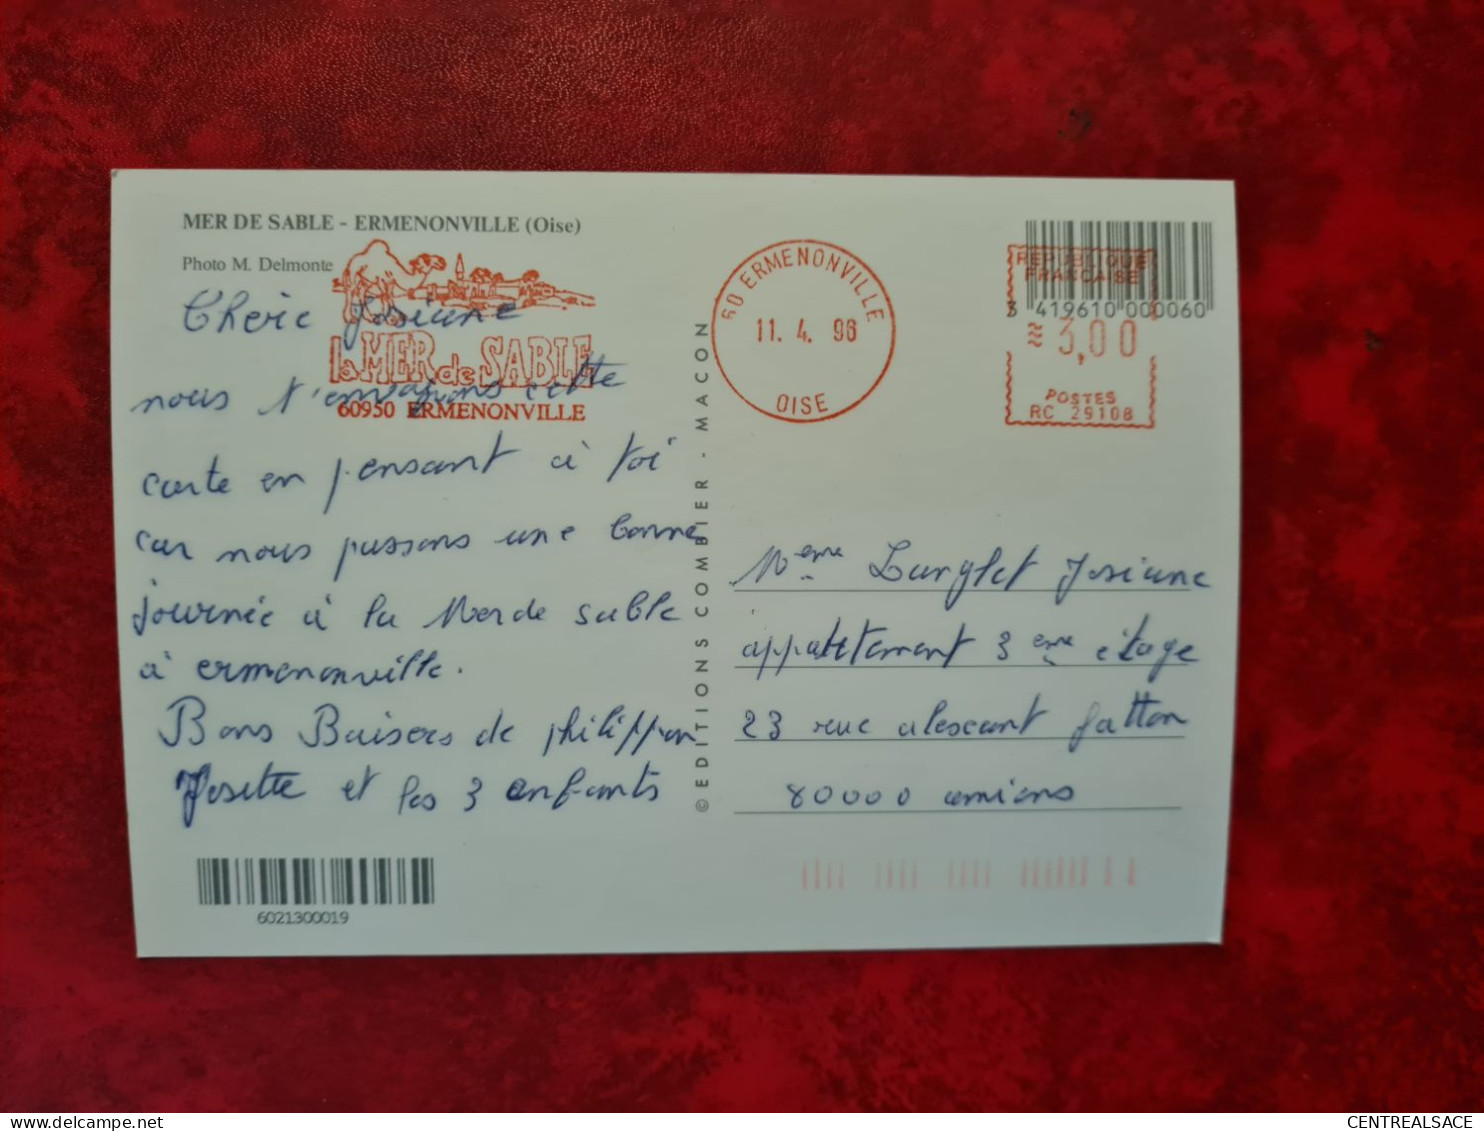 MER DE SABLE - ERMENONVILLE (Oise)
Photo M. Delmonte
Cheric Josiane
la MER de SABLE
nous t'envoyons cette
60950 ERMENONVILLE
carte en pensant à toi
car nous passons une bonne
journée à la Mer de sable
à ermenonville.
Bons Baisers de philippon
Josette et les 3 enfants
6021300019
© EDITIONS COMBIER - MACON
60 ERMENONVILLE
11. 4. 96
OISE
REPUBLIQUE
FRANCAISE
3 419610 000060
≋ 3,00
POSTES
RC 29108
Meme Langlet Josiane
appartement 3 eme étage
23 rue alescant fatton
80000 amiens
CENTREALSACE
www.delcampe.net